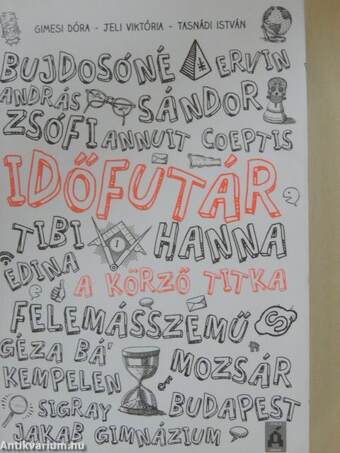 GIMESI DÓRA - JELI VIKTÓRIA - TASNÁDI ISTVÁN
BUJDOSÓNÉ ERVIN
ANDRÁS SÁNDOR
ZSÓFI ANNUIT COEPTIS
IDŐFUTÁR
TIBI HANNA
EDINA
A KÖRZŐ TITKA
FELEMÁSSZEMŰ
GÉZA BÁ'
KEMPELEN MOZSÁR
SIGRAY BUDAPEST
JAKAB GIMNÁZIUM
Antikvarium.hu